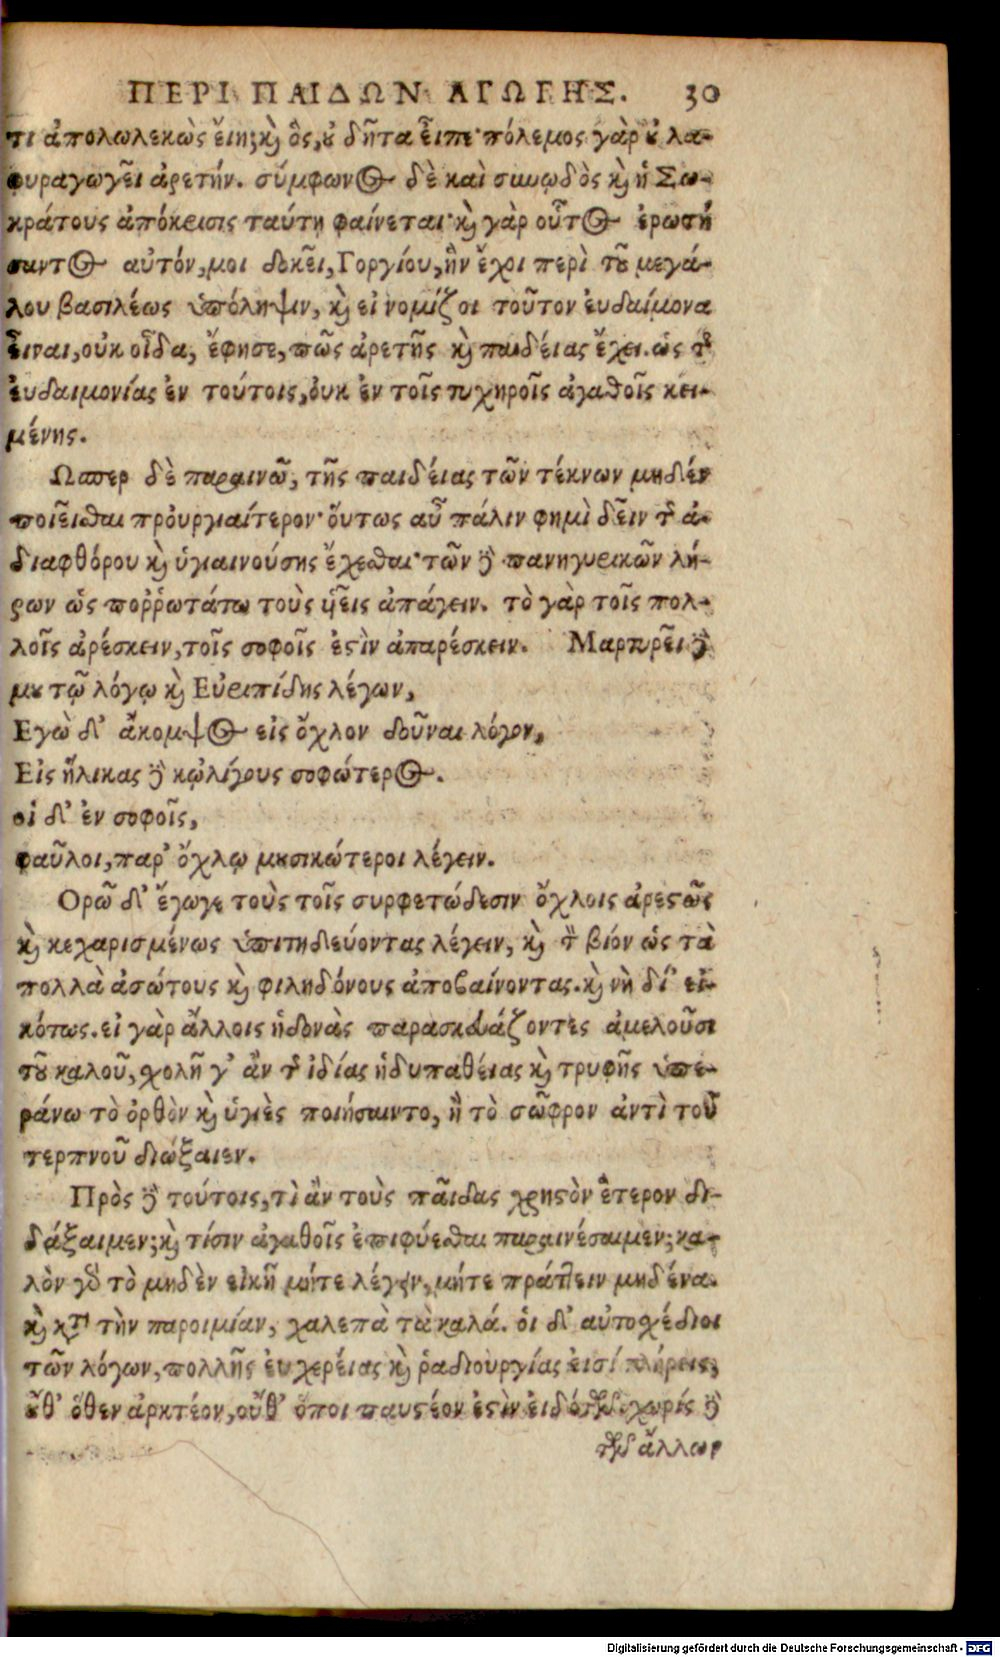 ΠΕΡΙ ΠΑΙΔΩΝ ΑΓΩΓΗΣ. 30
τι ἀπολωλεκὼς ἔιη; καὶ ὃς, οὐ δῆτα εἶπε· πόλεμος γὰρ οὐ λα-
φυραγωγεῖ ἀρετήν. σύμφωνος δὲ καὶ συνῳδὸς καὶ ἡ Σω-
κράτους ἀπόκρισις ταύτῃ φαίνεται· καὶ γὰρ οὗτος ἐρωτή
σαντος αὐτόν, μοι δοκεῖ, Γοργίου, ἣν ἔχοι περὶ τοῦ μεγά-
λου βασιλέως ὑπόληψιν, καὶ εἰ νομίζοι τοῦτον ἐυδαίμονα
εἶναι, οὐκ οἶδα, ἔφησε, πῶς ἀρετῆς καὶ παιδέιας ἔχει. ὡς τῆς
ἐυδαιμονίας ἐν τούτοις, ὀυκ ἐν τοῖς τυχηροῖς ἀγαθοῖς κει-
μένης.
Ωσπερ δὲ παραινῶ, τῆς παιδέιας τῶν τέκνων μηδὲν
ποιεῖσθαι προὐργιαίτερον· ὅυτως αὖ πάλιν φημὶ δεῖν τῆς ἀ-
διαφθόρου καὶ ὑγιαινούσης ἔχεσθαι· τῶν δὲ πανηγυρικῶν λή-
ρων ὡς ποῤῥωτάτω τοὺς ὑεῖς ἀπάγειν. τὸ γὰρ τοῖς πολ-
λοῖς ἀρέσκειν, τοῖς σοφοῖς ἐστὶν ἀπαρέσκειν. Μαρτυρεῖ δὲ
μου τῷ λόγῳ καὶ Εὐριπίδης λέγων,
Εγὼ δ’ ἄκομψος εἰς ὄχλον δοῦναι λόγον,
Εἰς ἥλικας δὲ κᾠλίγους σοφώτερος.
οἱ δ’ ἐν σοφοῖς,
φαῦλοι, παρ’ ὄχλῳ μουσικώτεροι λέγειν.
Ορῶ δ’ ἔγωγε τοὺς τοῖς συρφετώδεσιν ὄχλοις ἀρεστῶς
καὶ κεχαρισμένως ἐπιτηδεύοντας λέγειν, καὶ τὸν βιόν ὡς τὰ
πολλὰ ἀσώτους καὶ φιληδόνους ἀποβαίνοντας. καὶ νὴ δί’ εἰ-
κότως. εἰ γὰρ ἄλλοις ἡδονὰς παρασκευάζοντες ἀμελοῦσι
τοῦ καλοῦ, σχολῇ γ’ ἂν τῆς ἰδίας ἡδυπαθέιας καὶ τρυφῆς ὑπε-
ράνω τὸ ὀρθὸν καὶ ὑγιὲς ποιήσαιντο, ἢ τὸ σῶφρον ἀντὶ τοῦ
τερπνοῦ διώξαιεν.
Πρὸς δὲ τούτοις, τὶ ἂν τοὺς παῖδας χρηστὸν ἕτερον δι-
δάξαιμεν; καὶ τίσιν ἀγαθοῖς ἐπιφύεσθαι παραινέσαιμεν; κα-
λὸν γὰρ τὸ μηδὲν εἰκῇ μήτε λέγειν, μήτε πράττειν μηδένα.
καὶ κατὰ τὴν παροιμίαν, χαλεπὰ τὰ καλά. ὁι δ’ αὐτοσχέδιοι
τῶν λόγων, πολλῆς ἐυχερέιας καὶ ῥαδιουργίας ἐισί πλήρεις,
οὔθ’ ὅθεν ἀρκτέον, οὔθ’ ὅποι παυστέον ἐστὶν ἐιδότων. χωρίς δὲ
τῶν ἄλλων
Digitalisierung gefördert durch die Deutsche Forschungsgemeinschaft - DFG